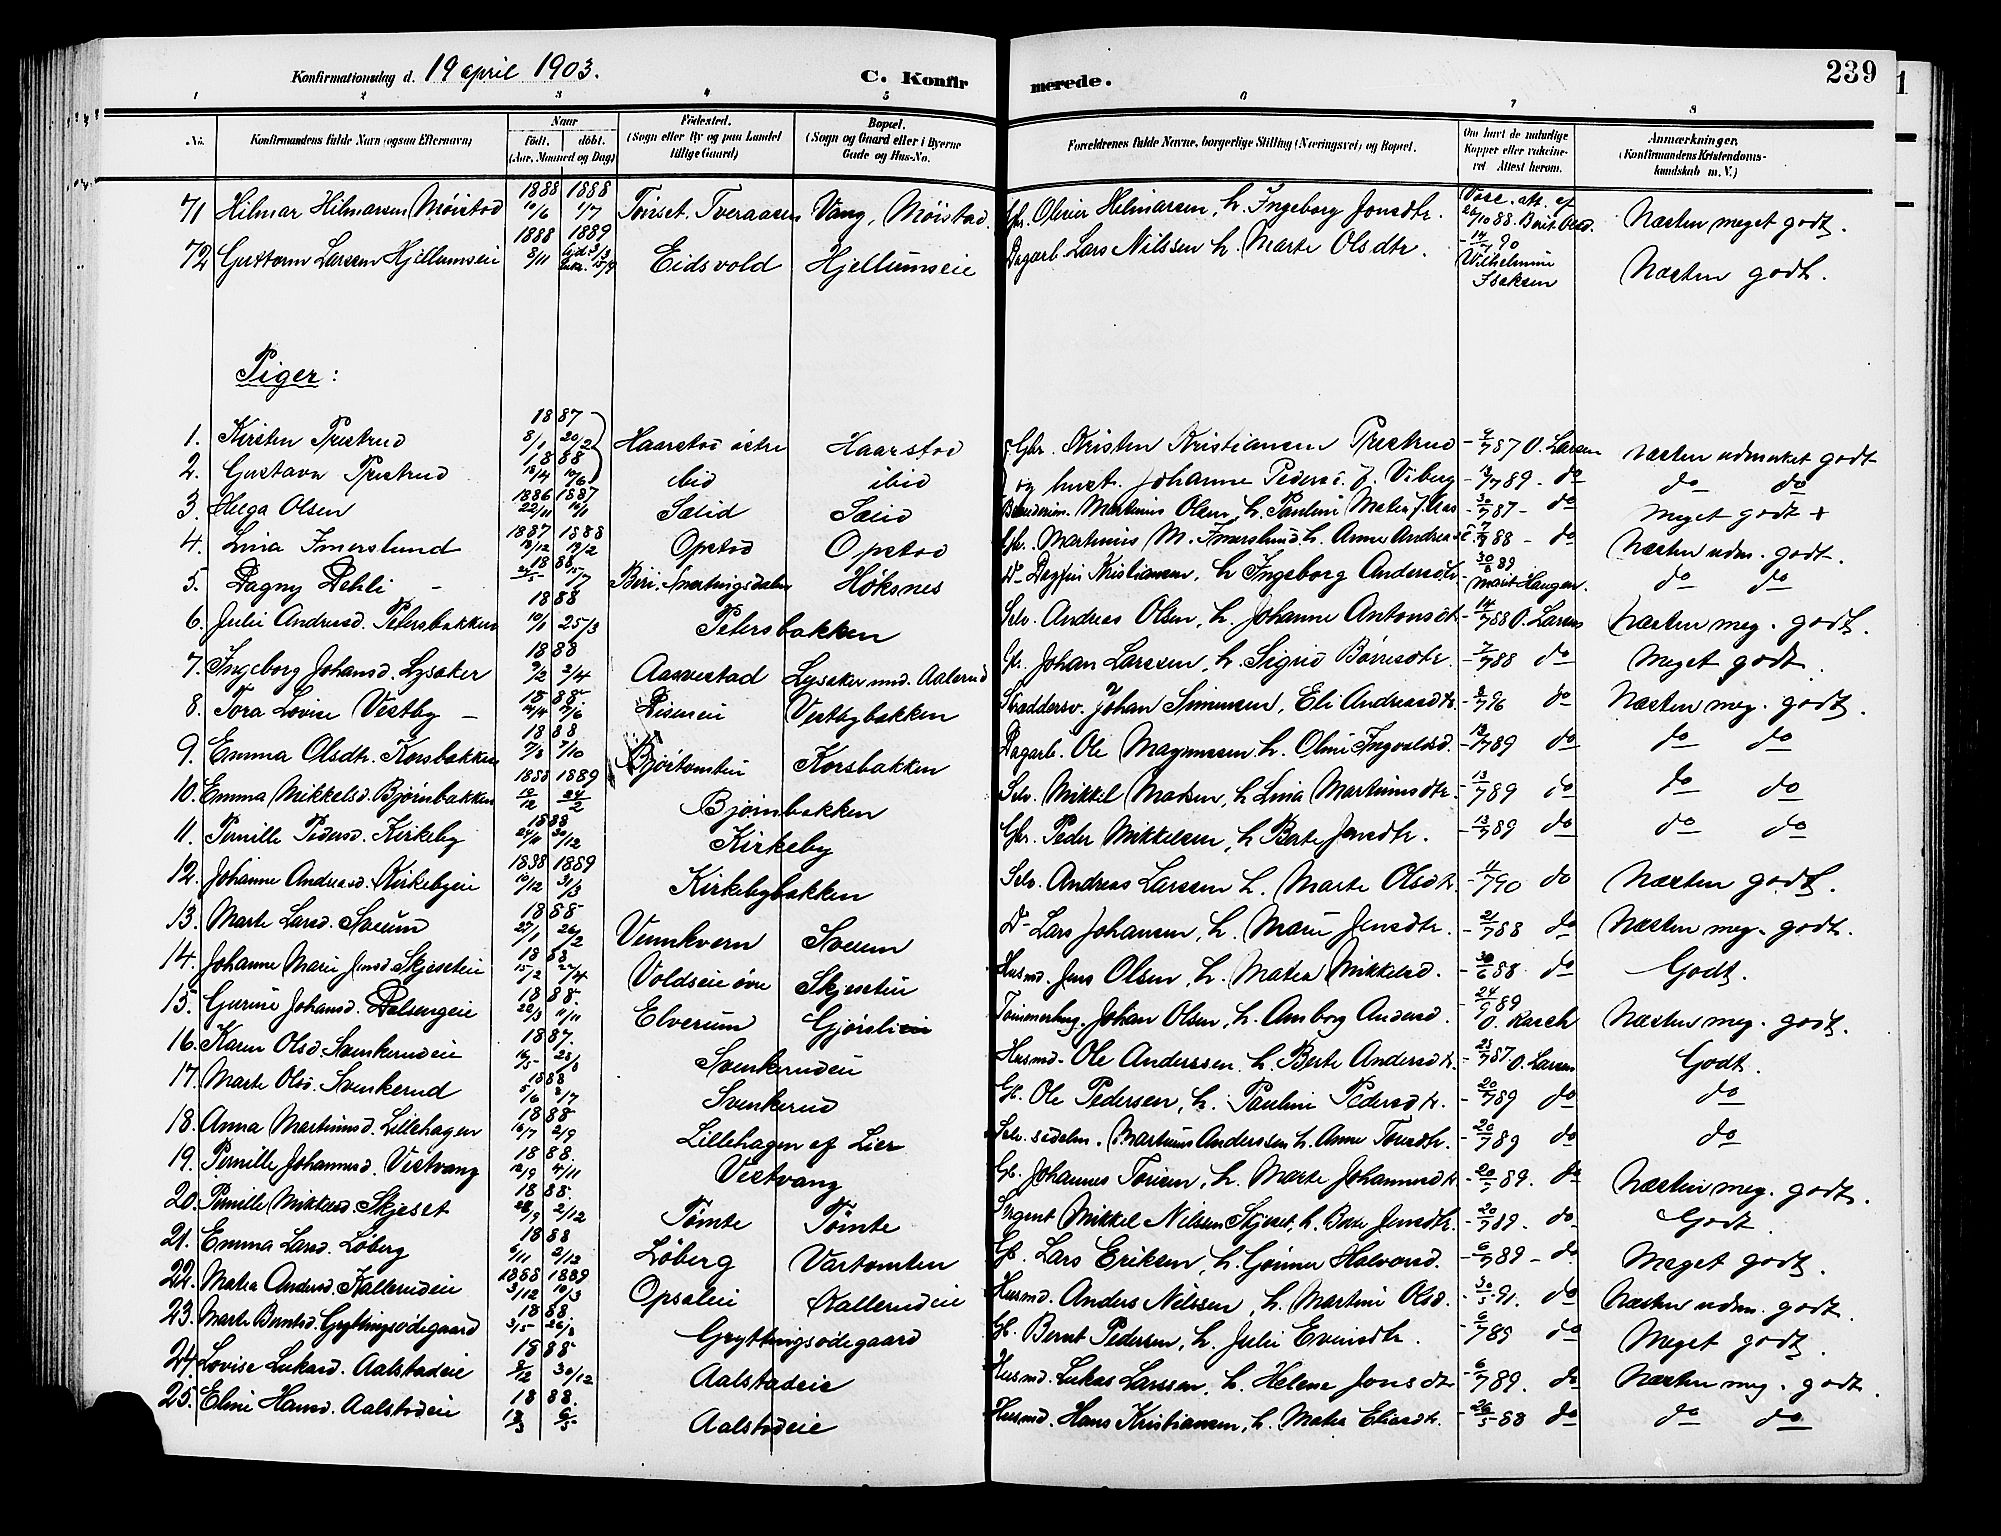 Konfirmationsdag d. 19 april 1903. C. Konfir merede. 239
1 2 3 4 5 6 7 8
No. Konfirmandens fulde Navn (ogsaa Efternavn) Naar Födt. döbt. (Aar, Maaned og Dag) Födested. (Sogn eller By og paa Landet tillige Gaard) Bopæl. (Sogn og Gaard eller i Byerne Gade og Hus-No. Forældrenes fulde Navne, borgerlige Stilling (Næringsvei) og Bopæl. Om havt de naturlige Kopper eller vaccineret. Attest herom. Anmærkninger. (Konfirmandens Kristendomskundskab m. V.)
71 Hilmar Hilmarsen Møistad 1888 10/6 1888 1/7 Tönset, Tveraaen Vang, Møistad. Hilmarsen, h. Ingeborg Jonsdtr. Vacc. att. af 26/10 88. Berit Næsten meget godt.
72 Guttorm Larsen Hjellumseie 1888 8/11 1889 Eidsvold Hjellumseie Dagarb. Lars Nilssen h. Marte Olsdtr. 90 Wilhelmine Isaksen Næsten godt.
Piger:
1. Kirsten Prestrud 1887 8/1 20/2 Haarstad østre Haarstad Gbr. Kristen Kristiansen Prestrud 87 O. Larsen Næsten udmerket godt
2. Gustava Prestrud 1888 13/4 10/6 ibid ibid og hust. Johanne Pedersd. f. Viberg 13/7 89. do do do
3. Helga Olsen 1886 22/11 1887 Sælid Sælid Martinus Olsen, h. Pauline 30/7 87 - do Meget godt +
4. Lina Imerslund 1887 1888 19/2 Opstad Opstad Gbr. Martinius M. Imerslund, h. Anne 88 - do Næsten udm. godt.
5. Dagny Dehli - 1888 15/7 Biri. Snertingsdalen Høksnes Kristiansen, h. Ingeborg Andersdtr. 89 Marit Haugen. do do
6. Julie Andreasd. Petersbakken 1888 10/1 25/3 Petersbakken Selv. Andreas Olsen, h. Johanne Antonsdtr. 14/7 88 O. Larsen Næsten meg. godt.
7. Ingeborg Johansd. Lysaker 1888 9/2 2/4 Aasvestad Lysaker und. Aalerud Johan Larssen, h. Sigrid Børresdtr. 88 do Meget godt.
8. Tora Lovise Vestby - 1888 Disenei Vestbybakken Skraddersv. Johan Simensen, Eli Andreasdtr. 96 do Næsten meg. godt.
9. Emma Olsdtr. Korsbakken 1888 7/8 7/10 Bjørtomten Korsbakken Dagarb. Ole Magnussen h. Oline Ingvaldsd. 13/7 89 do do do
10. Emma Mikkelsd. Bjørnbakken 1888 1889 24/2 Bjørnbakken Selv. Mikkel Madsen, h. Lina Martinusdtr. 13/7 89 do do do
11. Pernille Pedersd. Kirkeby 1888 30/12 Kirkeby Gbr. Peder Mikkelsen, h. Berte Jensdtr. 13/7 89 do do do
12. Johanne Andreasd. Kirkebyeie 1888 10/12 1889 31/3 Kirkebybakken Selv. Andreas Larssen h. Marte Olsdtr. 90 do Næsten godt.
13. Marte Larsd. Sveum 1888 27/1 26/2 Vennkvern Sveum Lars Johansen, h. Marie Jensdtr. 21/7 88 do Næsten meg. godt.
14. Johanne Marie Jensd. Skjeseteie 1888 15/2 Voldseie øvre Skjeseteie Husmd. Jens Olsen, h. Matea Mikkelsd. 30/6 88. do Godt.
15. Gurine Johansd. Dalsengeie 1888. 22/3 11/11 Elverum Gjørslieie Tømmerhug. Johan Olsen, h. Amborg Andersd. 89 O. Rasch Næsten meg. godt.
16. Karen Olsd. Svenkerudeie 1887. Svenkerudeie Husmd. Ole Anderssen, h. Berte Andersdtr. 87. O. Larsen Godt.
17. Marte Olsd. Svenkerud 1888 5/6 Svenkerud Ole Pedersen, h. Pauline Pedersdtr. 20/7 89 do do
18. Anna Martinusd. Lillehagen 1888 2/9 Lillehagen af Lier Martinus Anderssen h. Anne 20/7 89 do do
19. Pernille Johannesd. Vestvang 1888. Vestvang Johannes h. Marte Johannesdtr. 20/7 89. do Næsten meg. godt.
20. Pernille Mikkelsd. Skjeset 1888. 2/12 Tømte Tømte Sergent Mikkel Nilsen Skjeset, h. Jensdtr. 20/7 89. do Godt
21. Emma Larsd. Løberg 1888 6/11 2/12 Løberg Vartomten Lars Eriksen, h. Halvorsd. 89 - do Meget godt.
22. Matea Andersd. Kallerudeie 1888 3/12 1889 10/3 Opsaleie Kallerudeie Husmd. Anders Nilssen, h. Martine Olsd. 91. do Næsten udm. godt.
23. Marte Berntsd. Gryttingsødegaard 1888 Gryttingsødegaard Bernt Pedersen, h. Julie Evensdtr. 89 do Meget godt.
24. Lovise Lukasd. Aalstadeie 1888 30/12 Aalstadeie Husmd. Lukas Larssen, h. Helene Jonsdtr. 6/7 89. do Næsten meg. godt.
25. Eline Hansd. Aalstadeie 1888. Aalstadeie Husmd. Hans Kristiansen, h. Matea Eliasdtr. 26/5 88 do do do